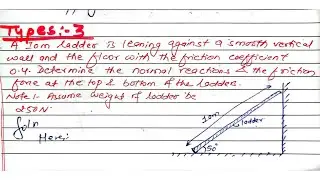 Types:- 3
A 10m ladder is leaning against a smooth vertical
wall and the floor with the friction coefficient
0.4. Determine the normal reactions & the friction
force at the top & bottom of the ladders.
Note:- Assume weight of ladder be
250N.
Soln
Here:
10m
ladder
50°